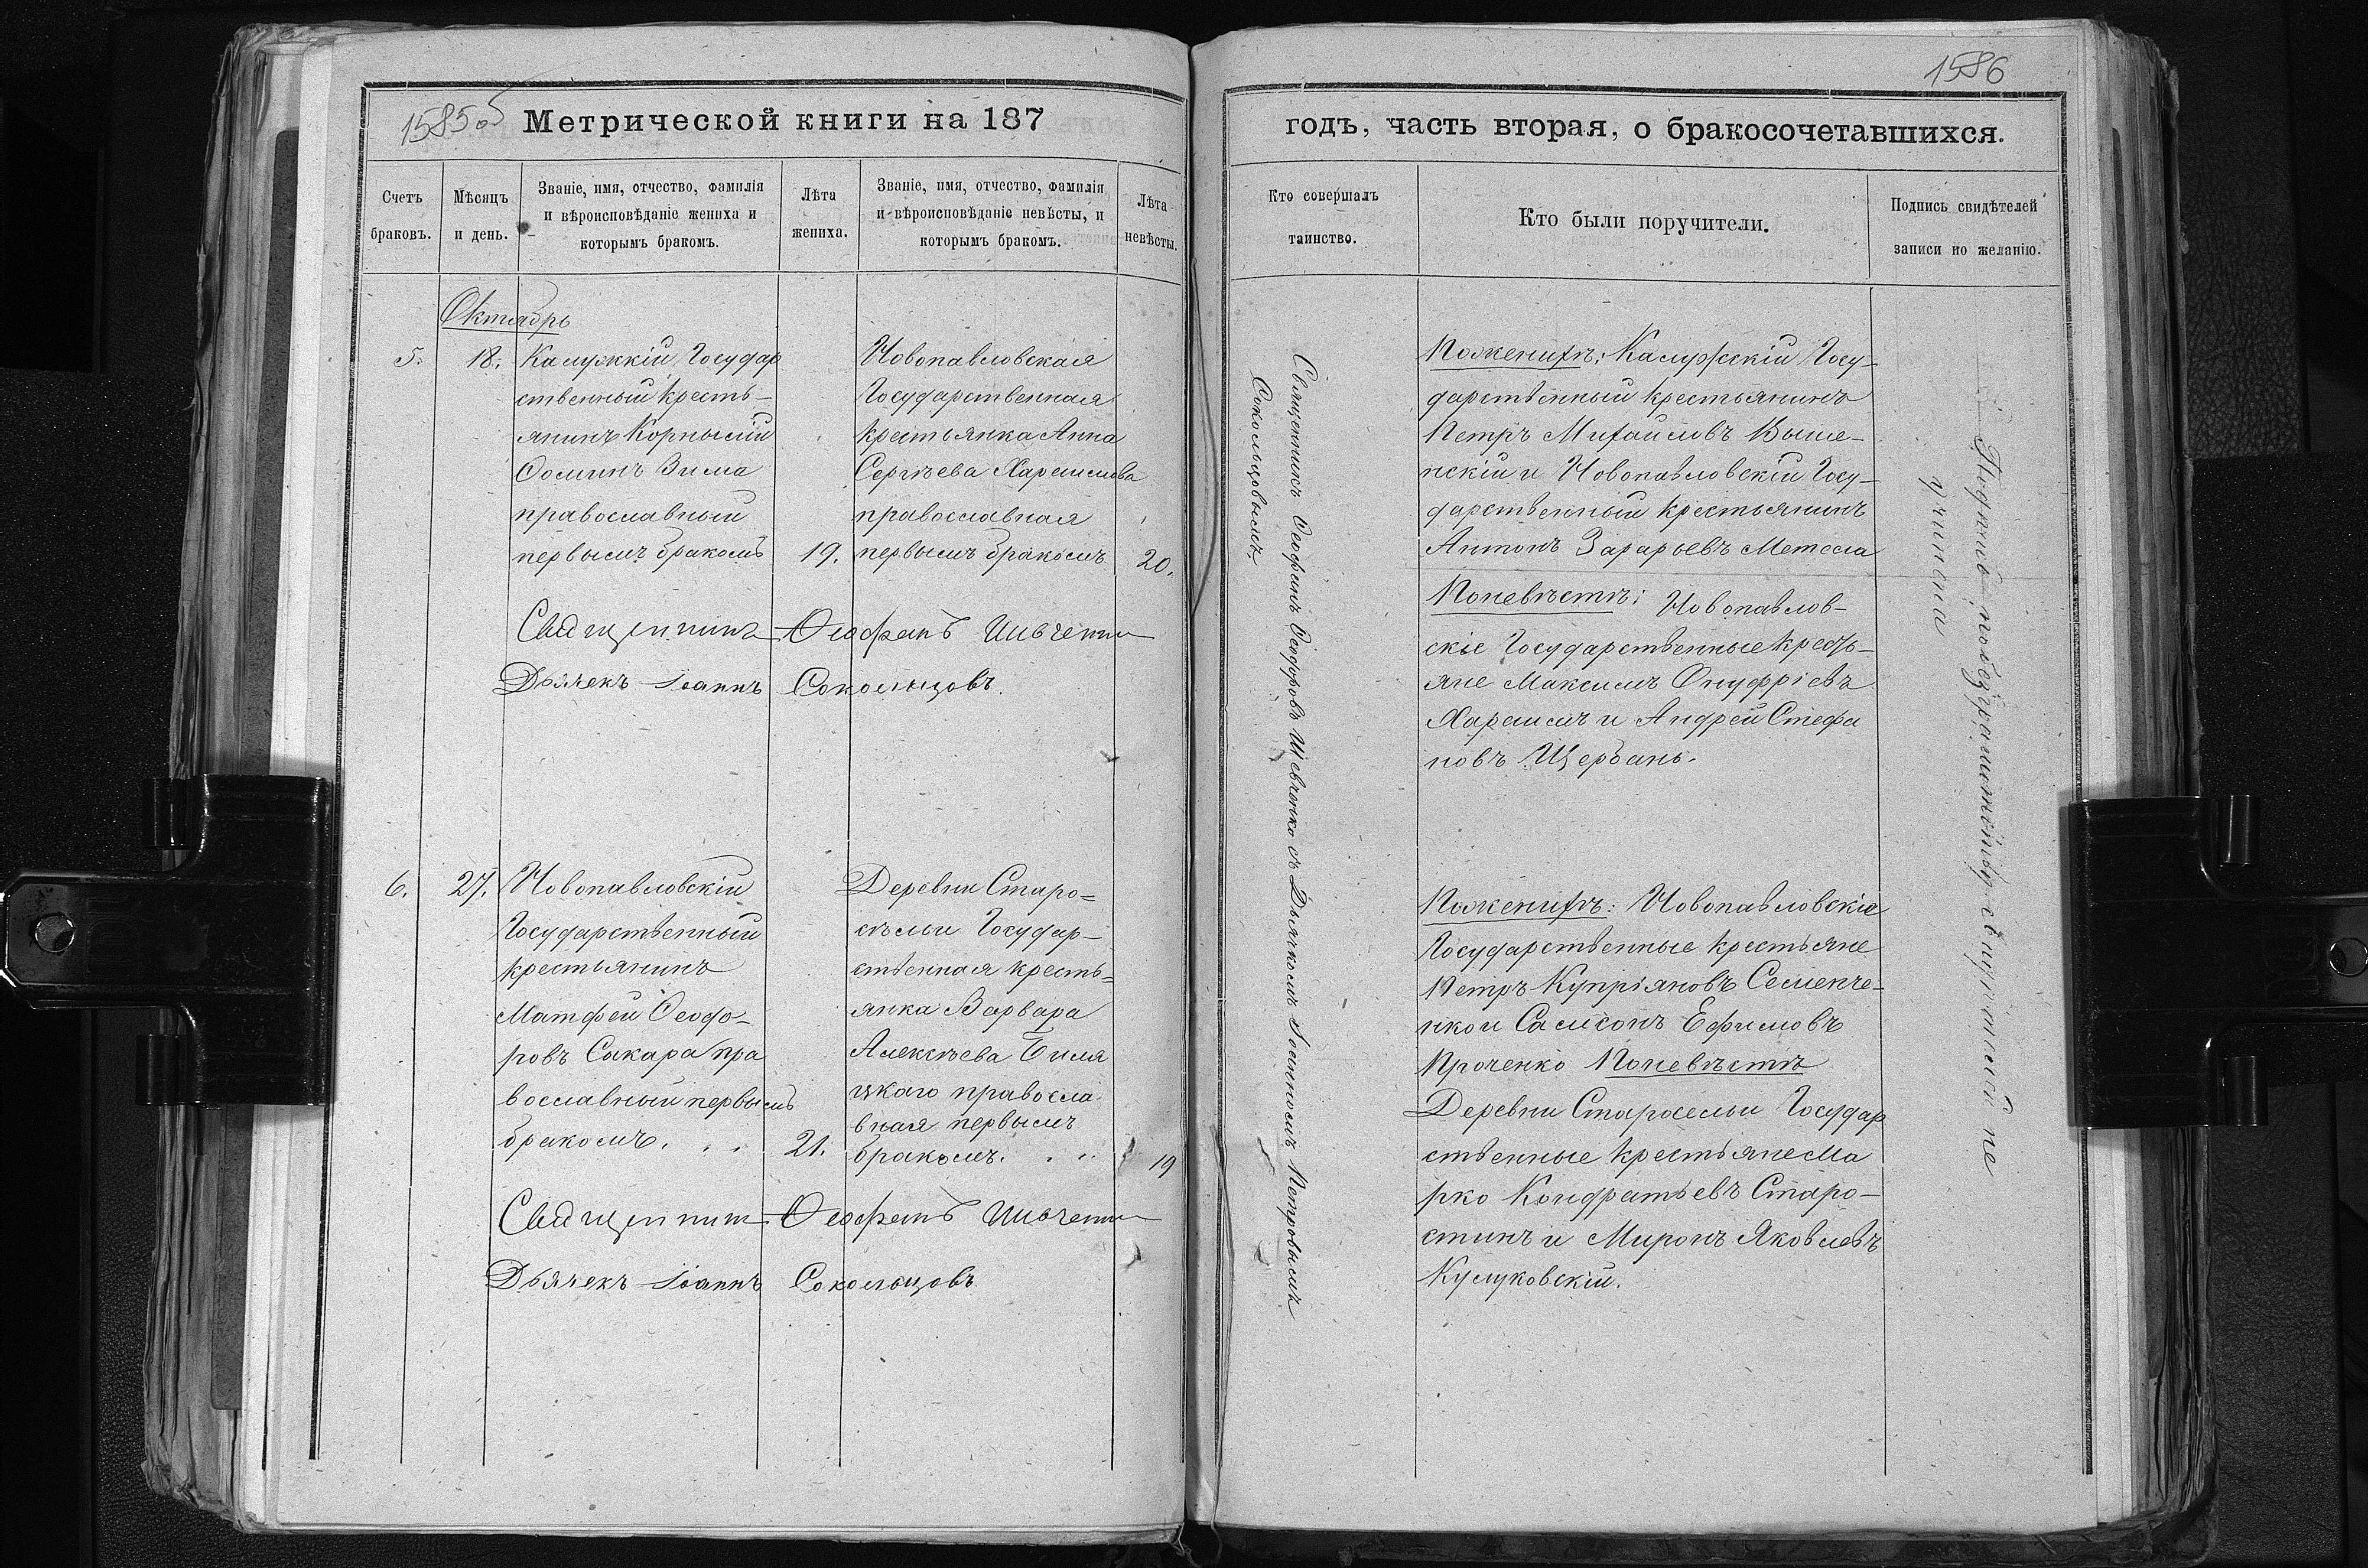 1585 об
Метрической книги на 187
Счетъ браковъ.
Мѣсяцъ и день.
Званіе, имя, отчество, фамилія
и вѣроисповѣданіе жениха и
которымъ бракомъ.
Лѣта жениха.
Званіе, имя, отчество, фамилія
и вѣроисповѣданіе невѣсты, и
которымъ бракомъ.
Лѣта невѣсты.
Октябрь
5.
18.
Калужкій Государ
ственный кресть-
янинъ Корнылій
Ѳоминъ Зима
православный
первымъ бракомъ
19.
Новопавловская
Государственная
крестьянка Анна
Сергѣева
православная
первымъ бракомъ
20.
Священникъ Ѳеофанъ Шевченко
Дьячекъ Іоаннъ Сокольцовъ.
6.
27.
Новопавловскій
Государственный
крестьянинъ
Матфей Ѳеодо-
ровъ Сакара пра
вославный первымъ
бракомъ. . .
21.
Деревни Старо=
сѣльи Государ-
ственная кресть=
янка Варвара
Алексѣева Биля
цкаго правосла
вная первымъ
бракомъ. . .
19
Священникъ Ѳеофанъ Шевченко
Дьячекъ Іоаннъ Сокольцовъ
1586
годъ, часть вторая, о бракосочетавшихся.
Кто совершалъ
таинство.
Кто были поручители.
Подпись свидѣтелей
записи по желанію.
Священникъ Ѳеофанъ Ѳеодоровъ Шевченко съ Дьячкомъ Іоанномъ Петровымъ
Сокольцовымъ
Поженихѣ: Калужскій Госу-
дарственный крестьянинъ
Петръ Михайловъ Выше-
пскій и Новопавловскій Госу-
дарственный крестьянинъ
Антонъ Захарьевъ Метела
Поневѣстѣ: Новопавлов-
скіе Государственные кресть-
яне Максимъ Онуфріевъ
и Андрей Стефа
новъ Щербань.
Поженихѣ: Новопавловскіе
Государственные крестьяне
Петръ Купріяновъ Семенче-
нко и Самсонъ Ефимовъ
Проченко Поневѣстѣ
Деревни Староселы Государ
ственные крестьяне Ма
рко Кондратьевъ Старо-
стинъ и Миронъ Яковлевъ
Кулуковскій.
Подпись по безграмотству свидѣтелей не
учинена